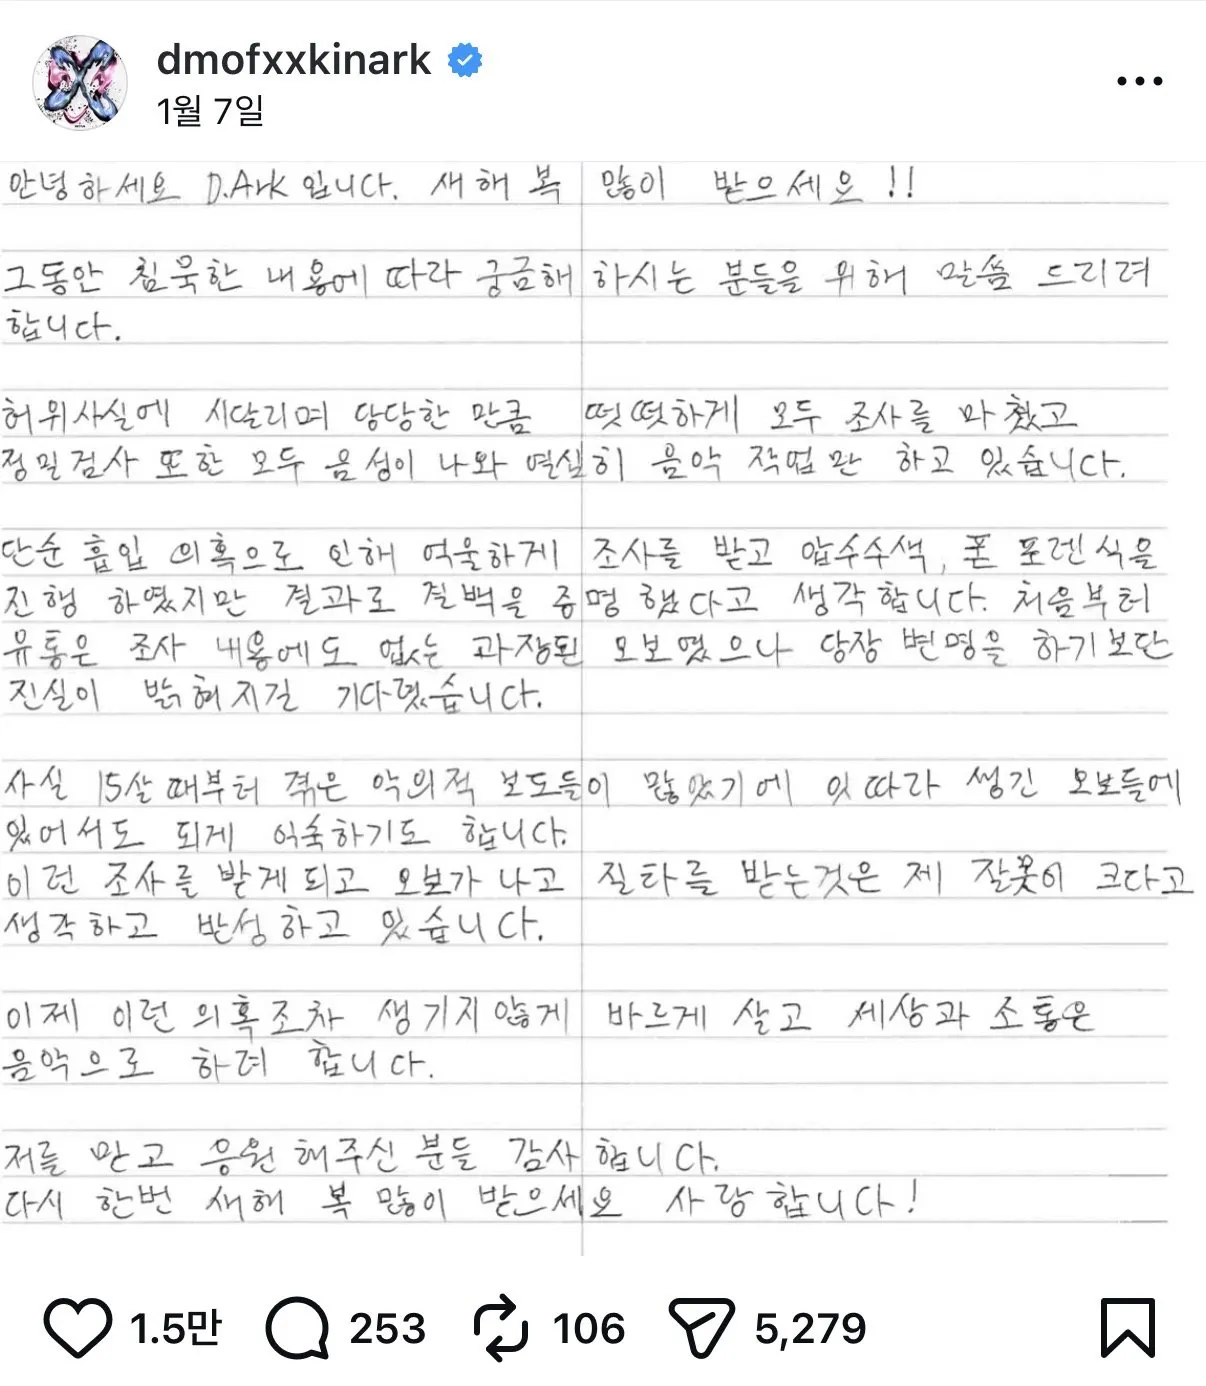 dmofxxkinark
1월 7일
안녕하세요 D.Ark 입니다. 새해 복 많이 받으세요 !!
그동안 침묵한 내용에 따라 궁금해 하시는 분들을 위해 말씀 드리려
합니다.
허위사실에 시달리며 당당한 만큼 떳떳하게 모두 조사를 마쳤고
정밀검사 또한 모두 음성이 나와 열심히 음악 작업만 하고 있습니다.
단순 흡입 의혹으로 인해 억울하게 조사를 받고 압수수색, 폰 포렌식을
진행 하였지만 결과로 결백을 증명 했다고 생각합니다. 처음부터
유통은 조사 내용에도 없는 과장된 오보였으나 당장 변명을 하기보단
진실이 밝혀지길 기다렸습니다.
사실 15살때부터 겪은 악의적 보도들이 많았기에 잇따라 생긴 오보들에
있어서도 되게 익숙하기도 합니다.
이런 조사를 받게되고 오보가 나고 질타를 받는것은 제 잘못이 크다고
생각하고 반성하고 있습니다.
이제 이런 의혹조차 생기지않게 바르게 살고 세상과 소통은
음악으로 하려 합니다.
저를 믿고 응원해주신 분들 감사합니다.
다시 한번 새해 복 많이 받으세요 사랑합니다!
1.5만 253 106 5,279